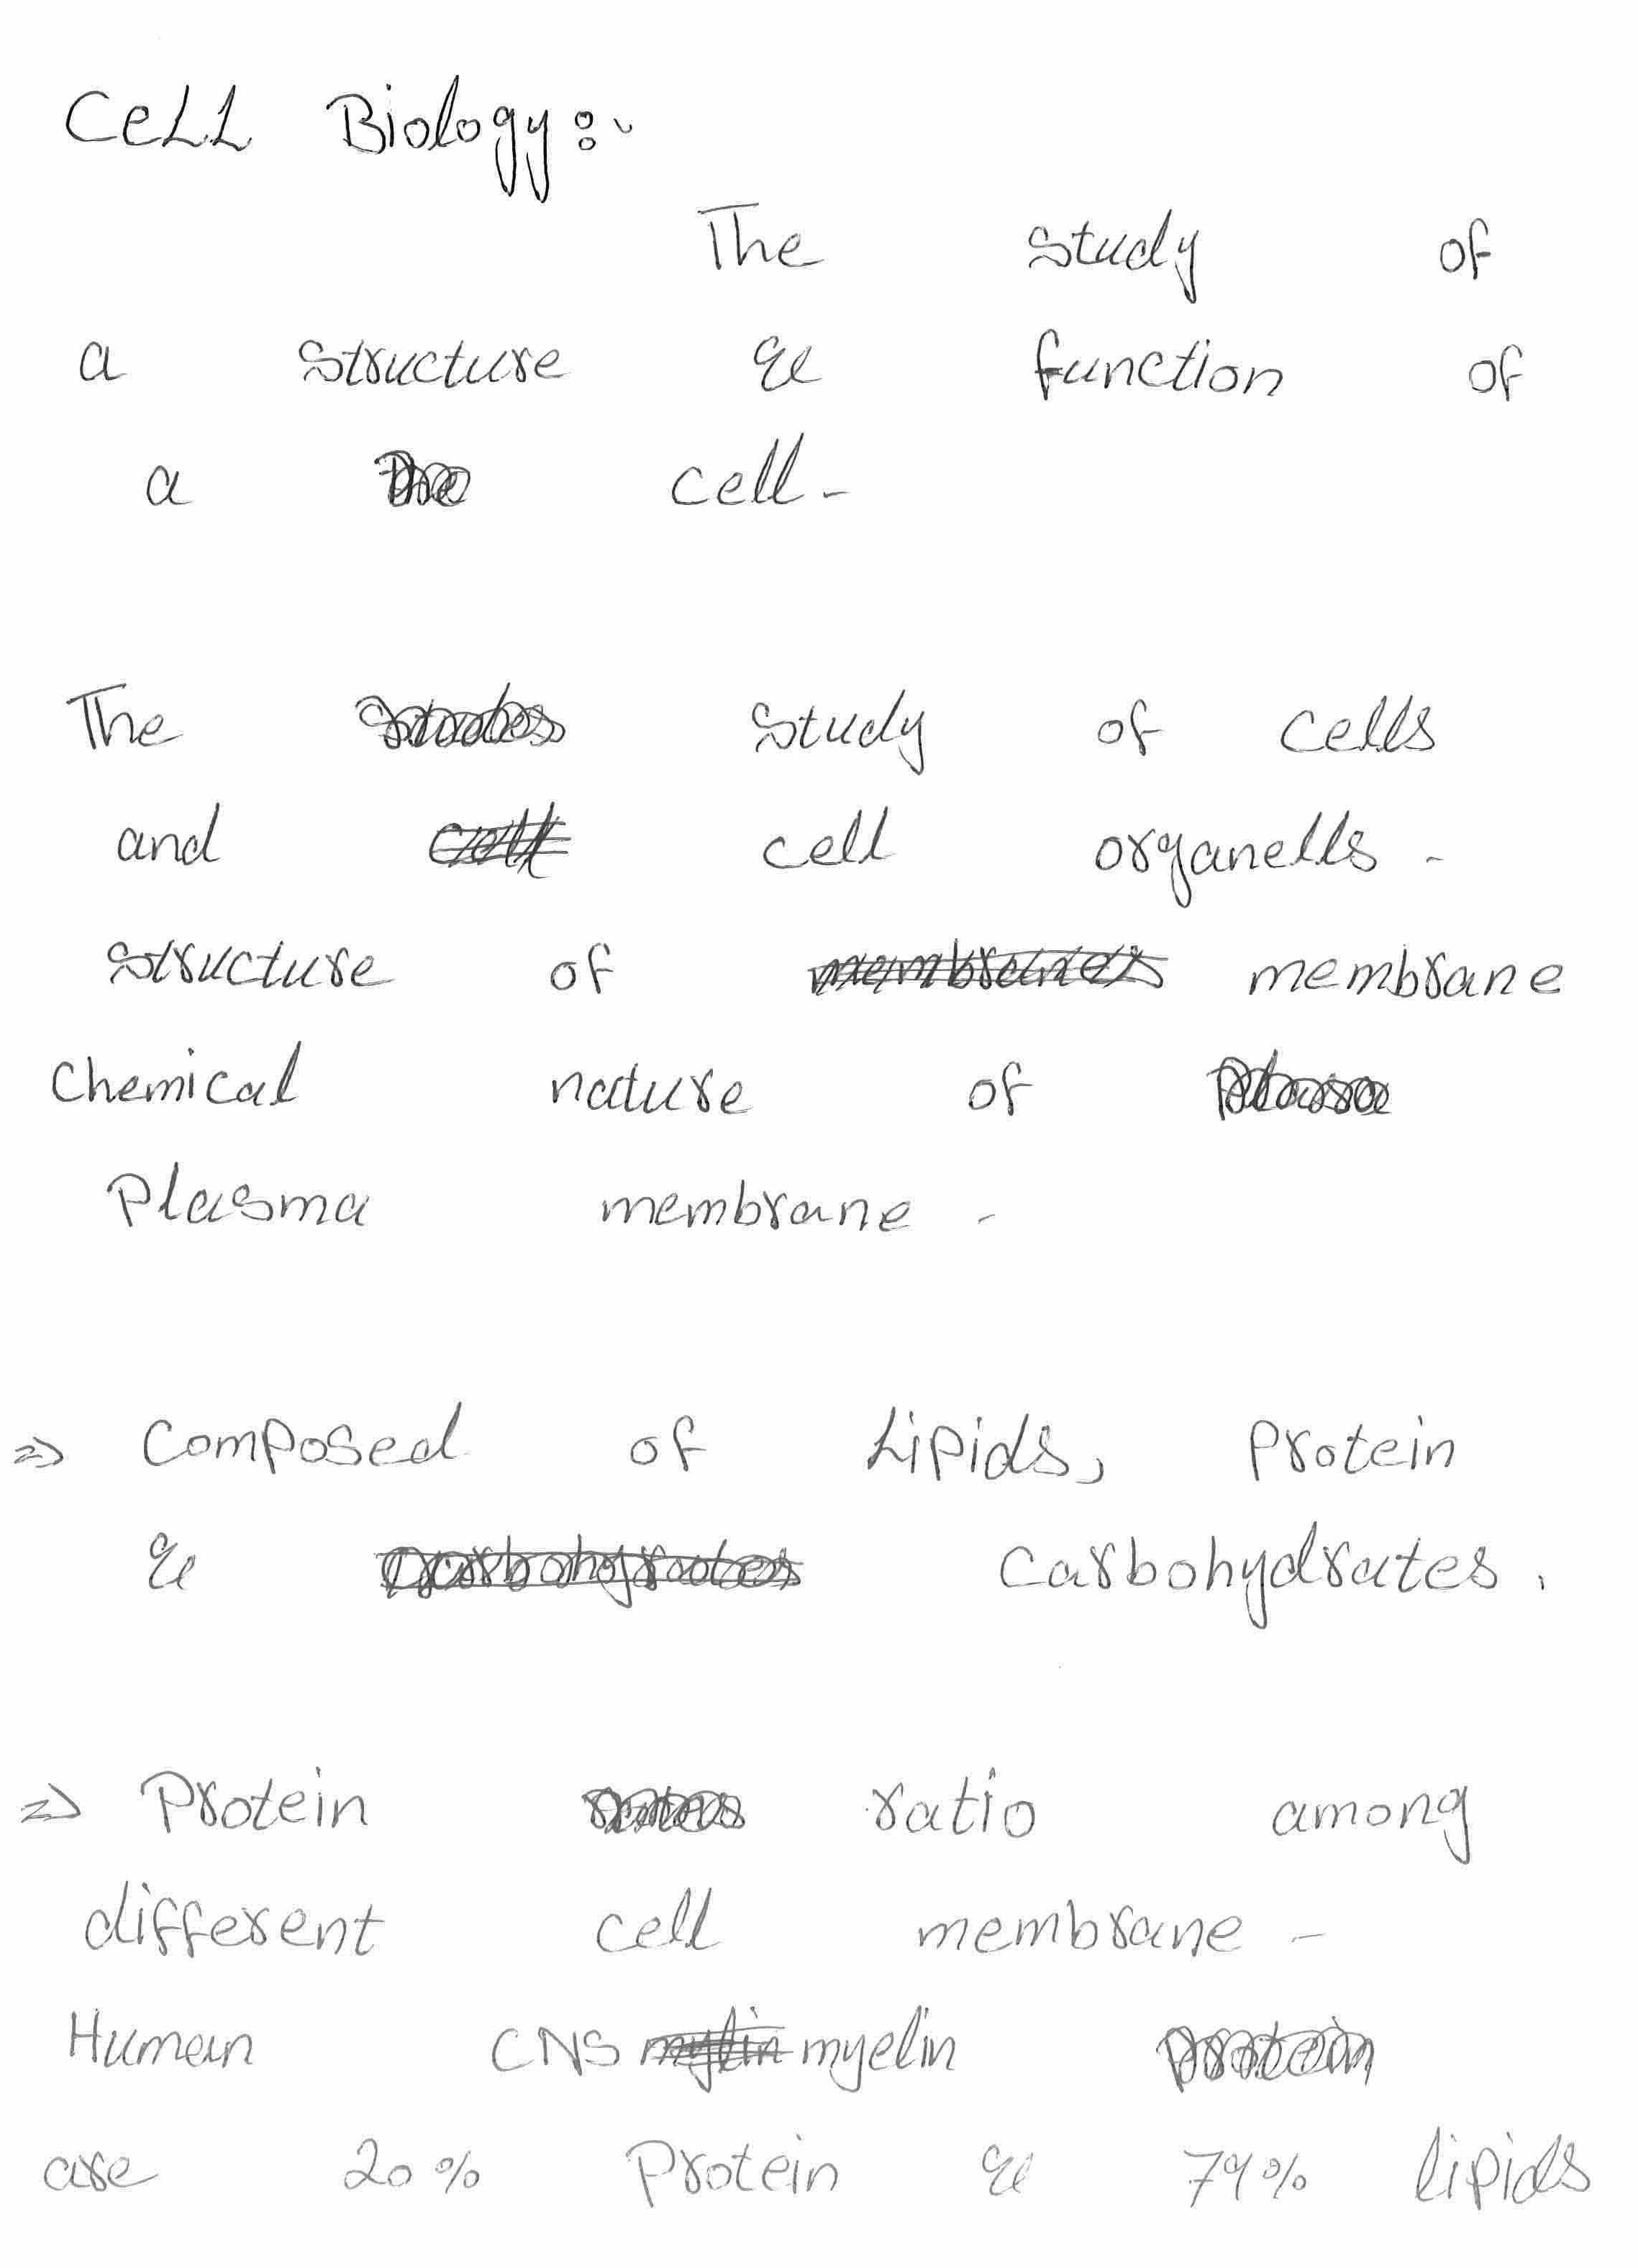 CeLL Biology:-
The study of
a structure & function of
a cell-
The study of cells
and cell organells-
structure of membrane
Chemical nature of
Plasma membrane-
=> Composed of Lipids, Protein
& Carbohydrates.
=> Protein ratio among
different cell membrane-
Human CNS myelin
are 20% Protein & 79% lipids